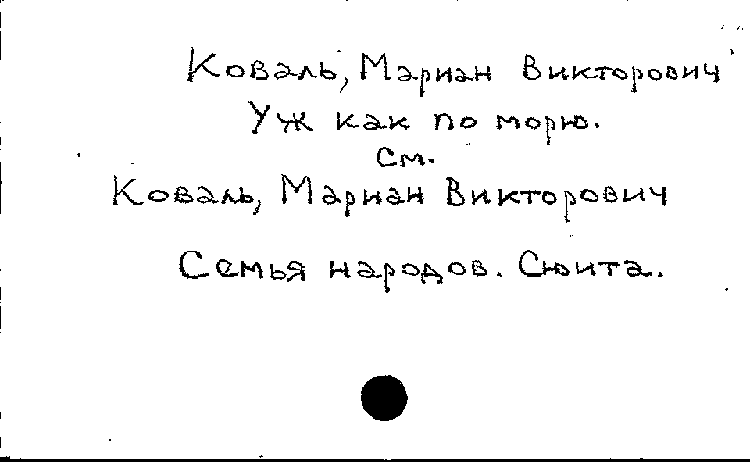 Коваль, Мариан Викторович
Уж как по морю.
см.
Коваль, Мариан Викторович
Семья народов. Сюита.